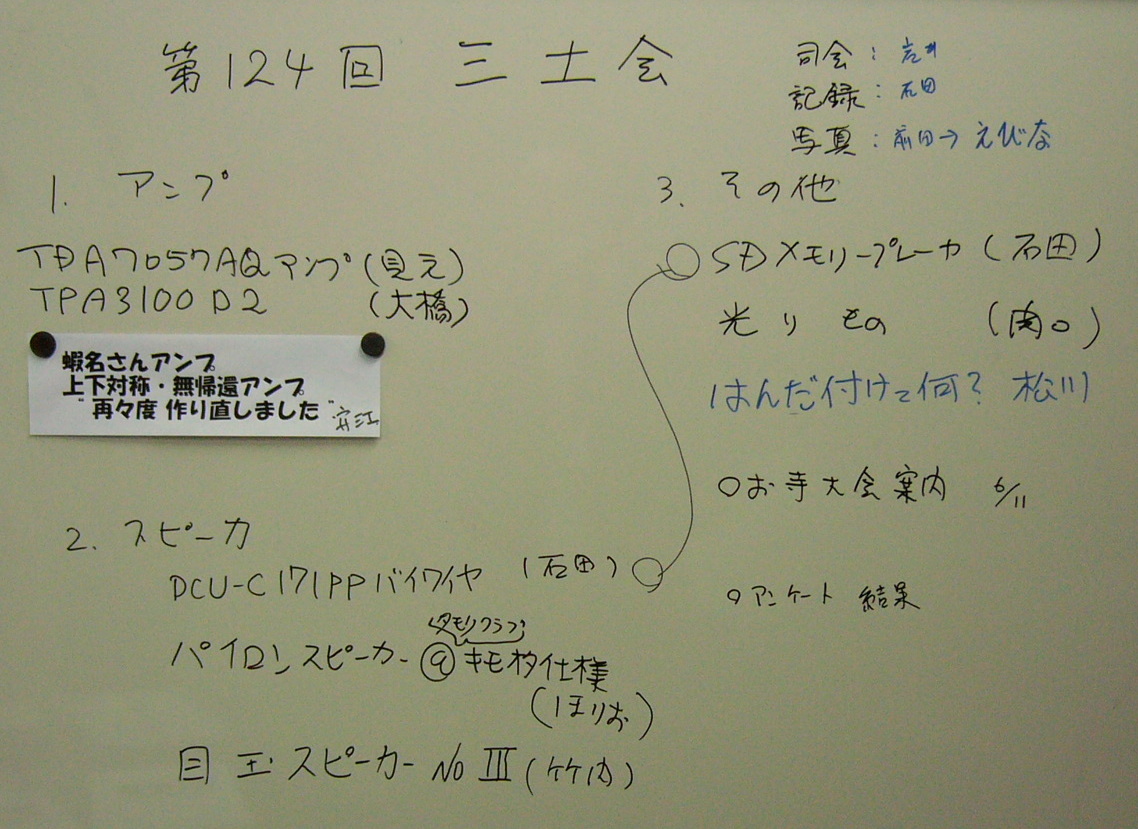 第124回 三土会
司会:
記録:石田
写真:前田→えびな
1. アンプ
TDA7057AQアンプ(見元)
TPA3100D2 (大橋)
蝦名さんアンプ
上下対称・無帰還アンプ
"再々度 作り直しました" 安江
2. スピーカ
DCU-C171PPバイワイヤ (石田)
タモリクラブ
パイロンスピーカー@キモオタ仕様
(ほりお)
目玉スピーカー No III (竹内)
3. その他
SDメモリープレーヤ (石田)
光りもの (関口)
はんだ付けって何? 松川
○お寺大会案内 6/11
○アンケート 結果